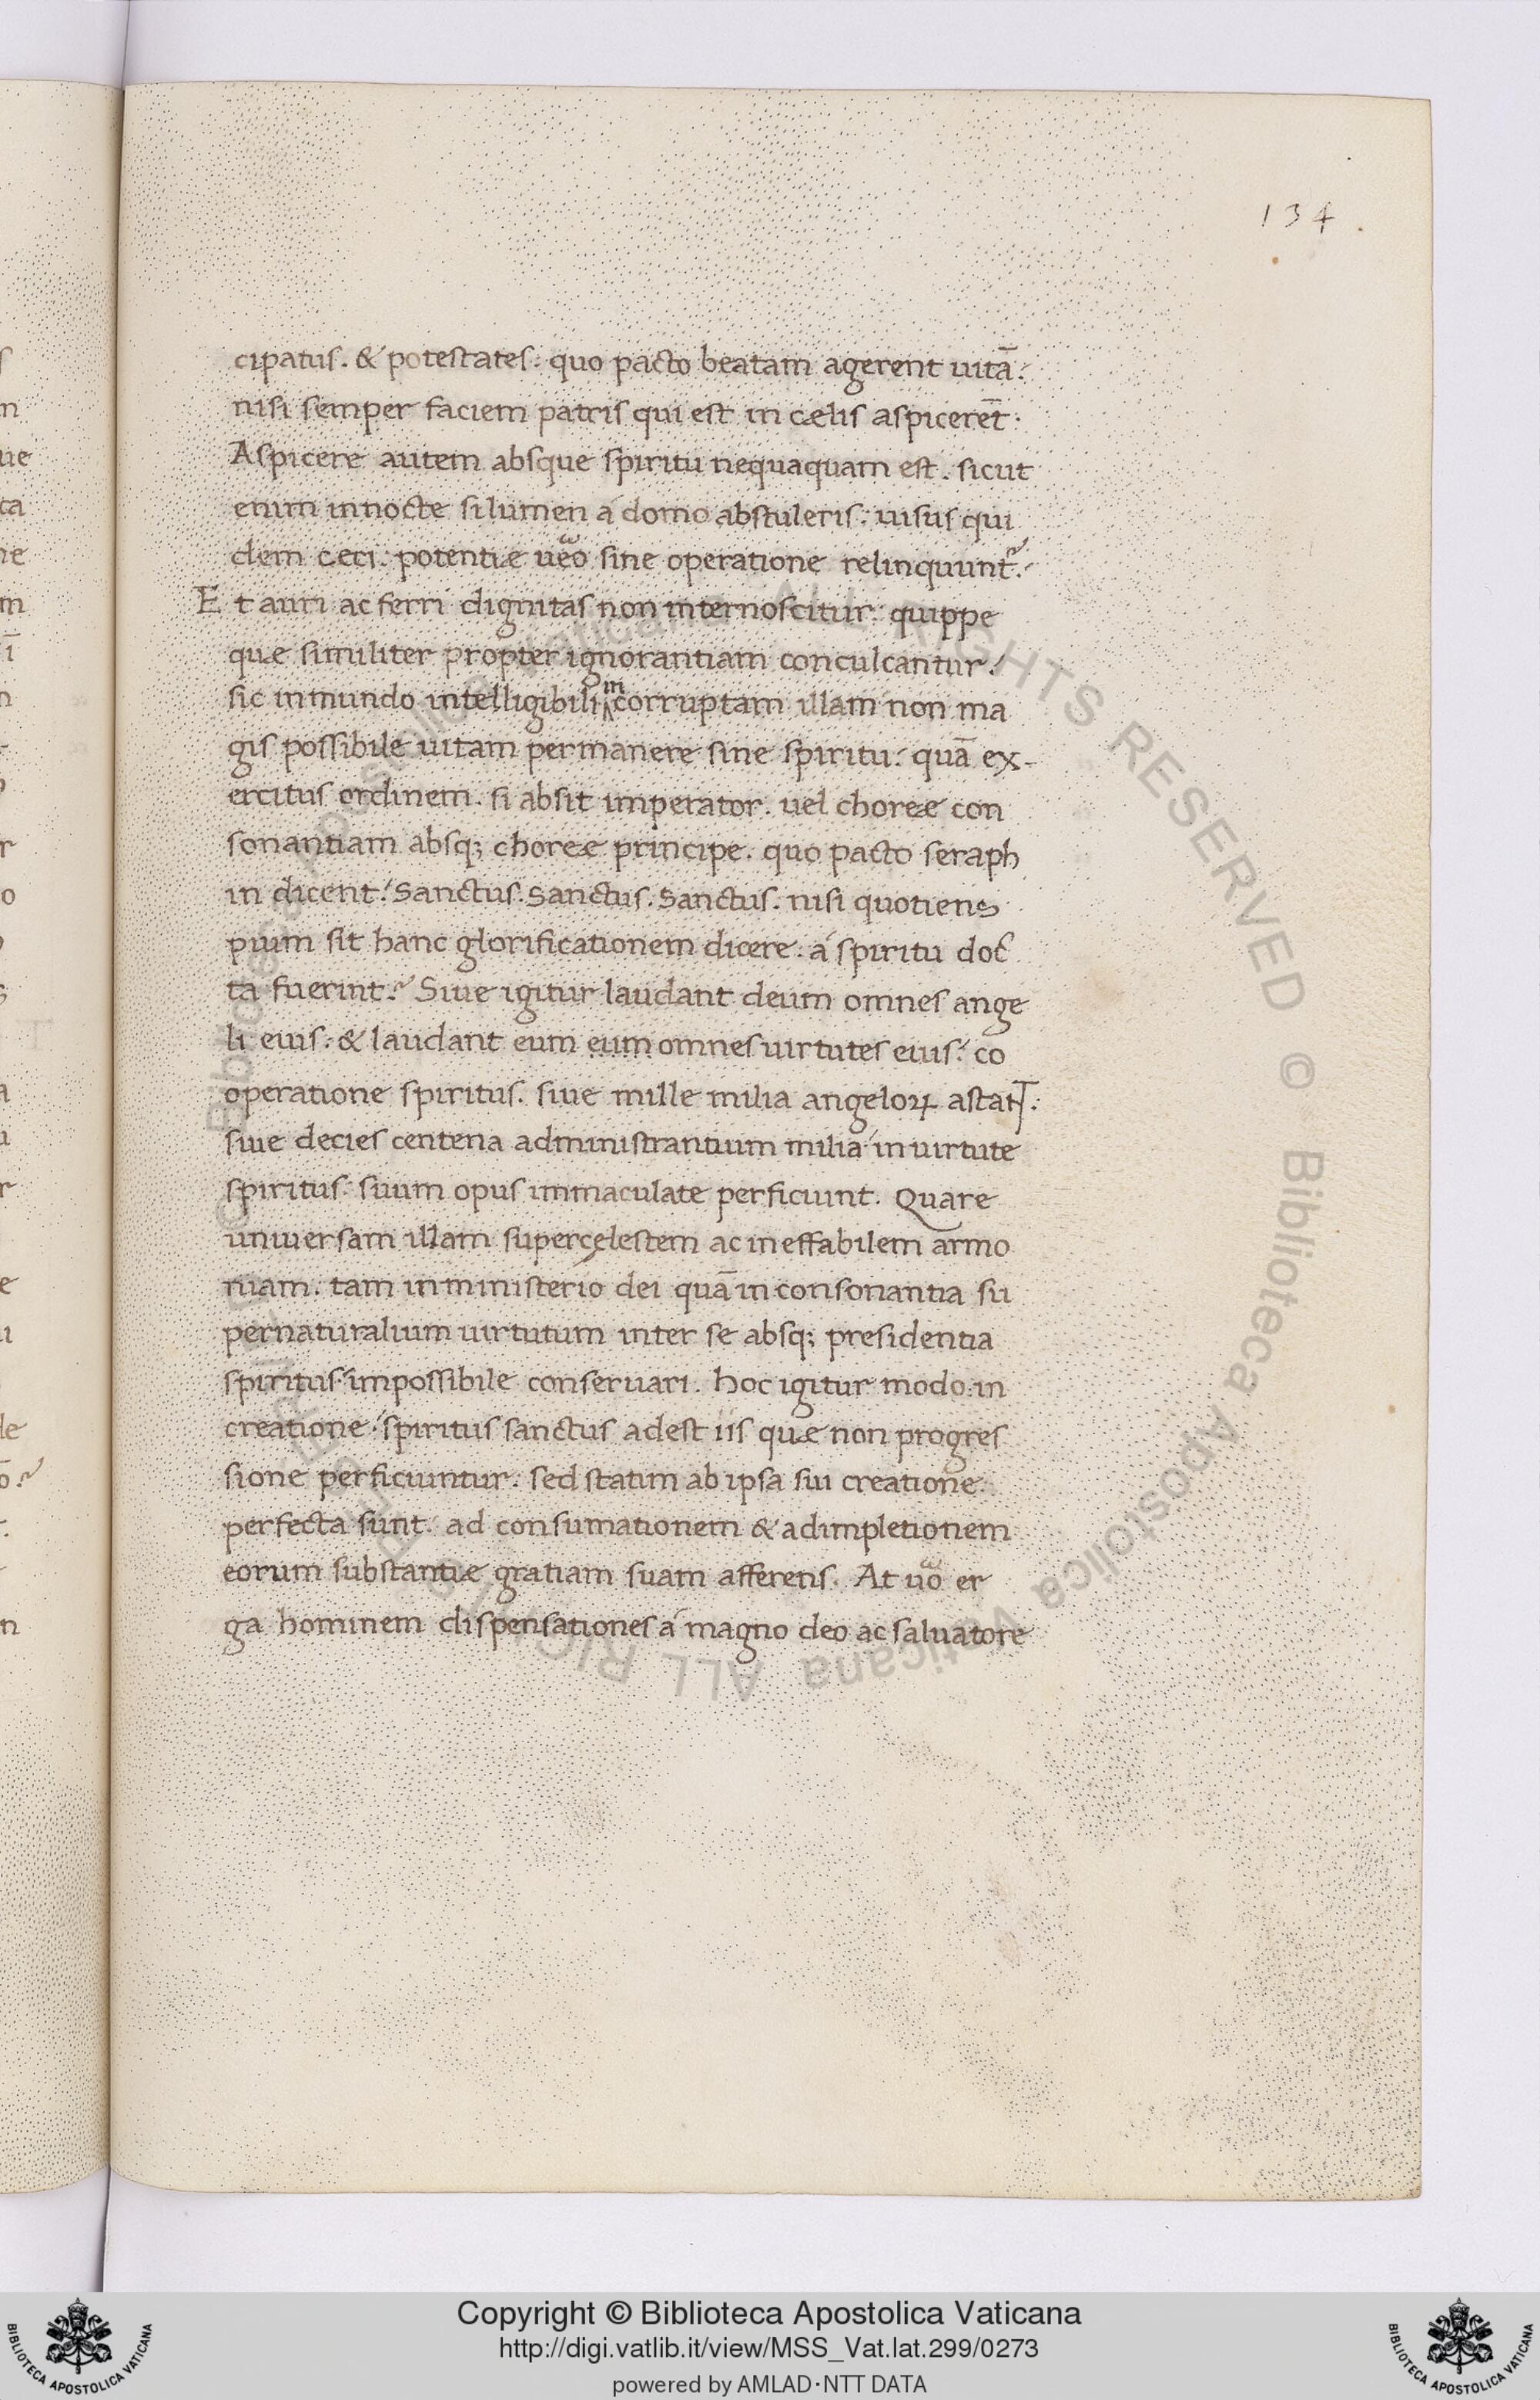 134
cipatus. & potestates: quo pacto beatam agerent uitā:
nisi semper faciem patris qui est in cælis aspicerēt.
Aspicere autem absque spiritu nequaquam est. sicut
enim in nocte si lumen á domo abstuleris: uisus qui
dem ceci: potentiæ uero sine operatione relinquunt᷑:
Et auri ac ferri dignitas non internoscitur: quippe
quæ similiter propter ignorantiam conculcantur:
sic in mundo intelligibili incorruptam illam non ma
gis possibile uitam permanere sine spiritu: quā ex-
ercitus ordinem. si absit imperator. uel choreæ con
sonantiam absq; choreæ principe. quo pacto seraph
in dicent: Sanctus. Sanctus. Sanctus. nisi quotiens
pium sit hanc glorificationem dicere. á spiritu doc
ta fuerint? Siue igitur laudant deum omnes ange
li eius: & laudant eum eum omnes uirtutes eius: co
operatione spiritus. siue mille milia angeloꝝ astāt:
siue decies centena administrantium milia: in uirtute
spiritus: suum opus immaculate perficiunt. Quare
uniuersam illam supercęlestem ac ineffabilem armo
niam. tam in ministerio dei quā in consonantia su
pernaturalium uirtutum inter se absq; presidentia
spiritus: impossibile conseruari. hoc igitur modo: in
creatione: spiritus sanctus adest iis quæ non progres
sione perficiuntur: sed statim ab ipsa sui creatione
perfecta sunt: ad consumationem & adimpletionem
eorum substantiæ gratiam suam afferens. At uo er
ga hominem dispensationes á magno deo ac saluatore
Copyright © Biblioteca Apostolica Vaticana
http://digi.vatlib.it/view/MSS_Vat.lat.299/0273
powered by AMLAD·NTT DATA
BIBLIOTECA APOSTOLICA VATICANA
BIBLIOTECA APOSTOLICA VATICANA